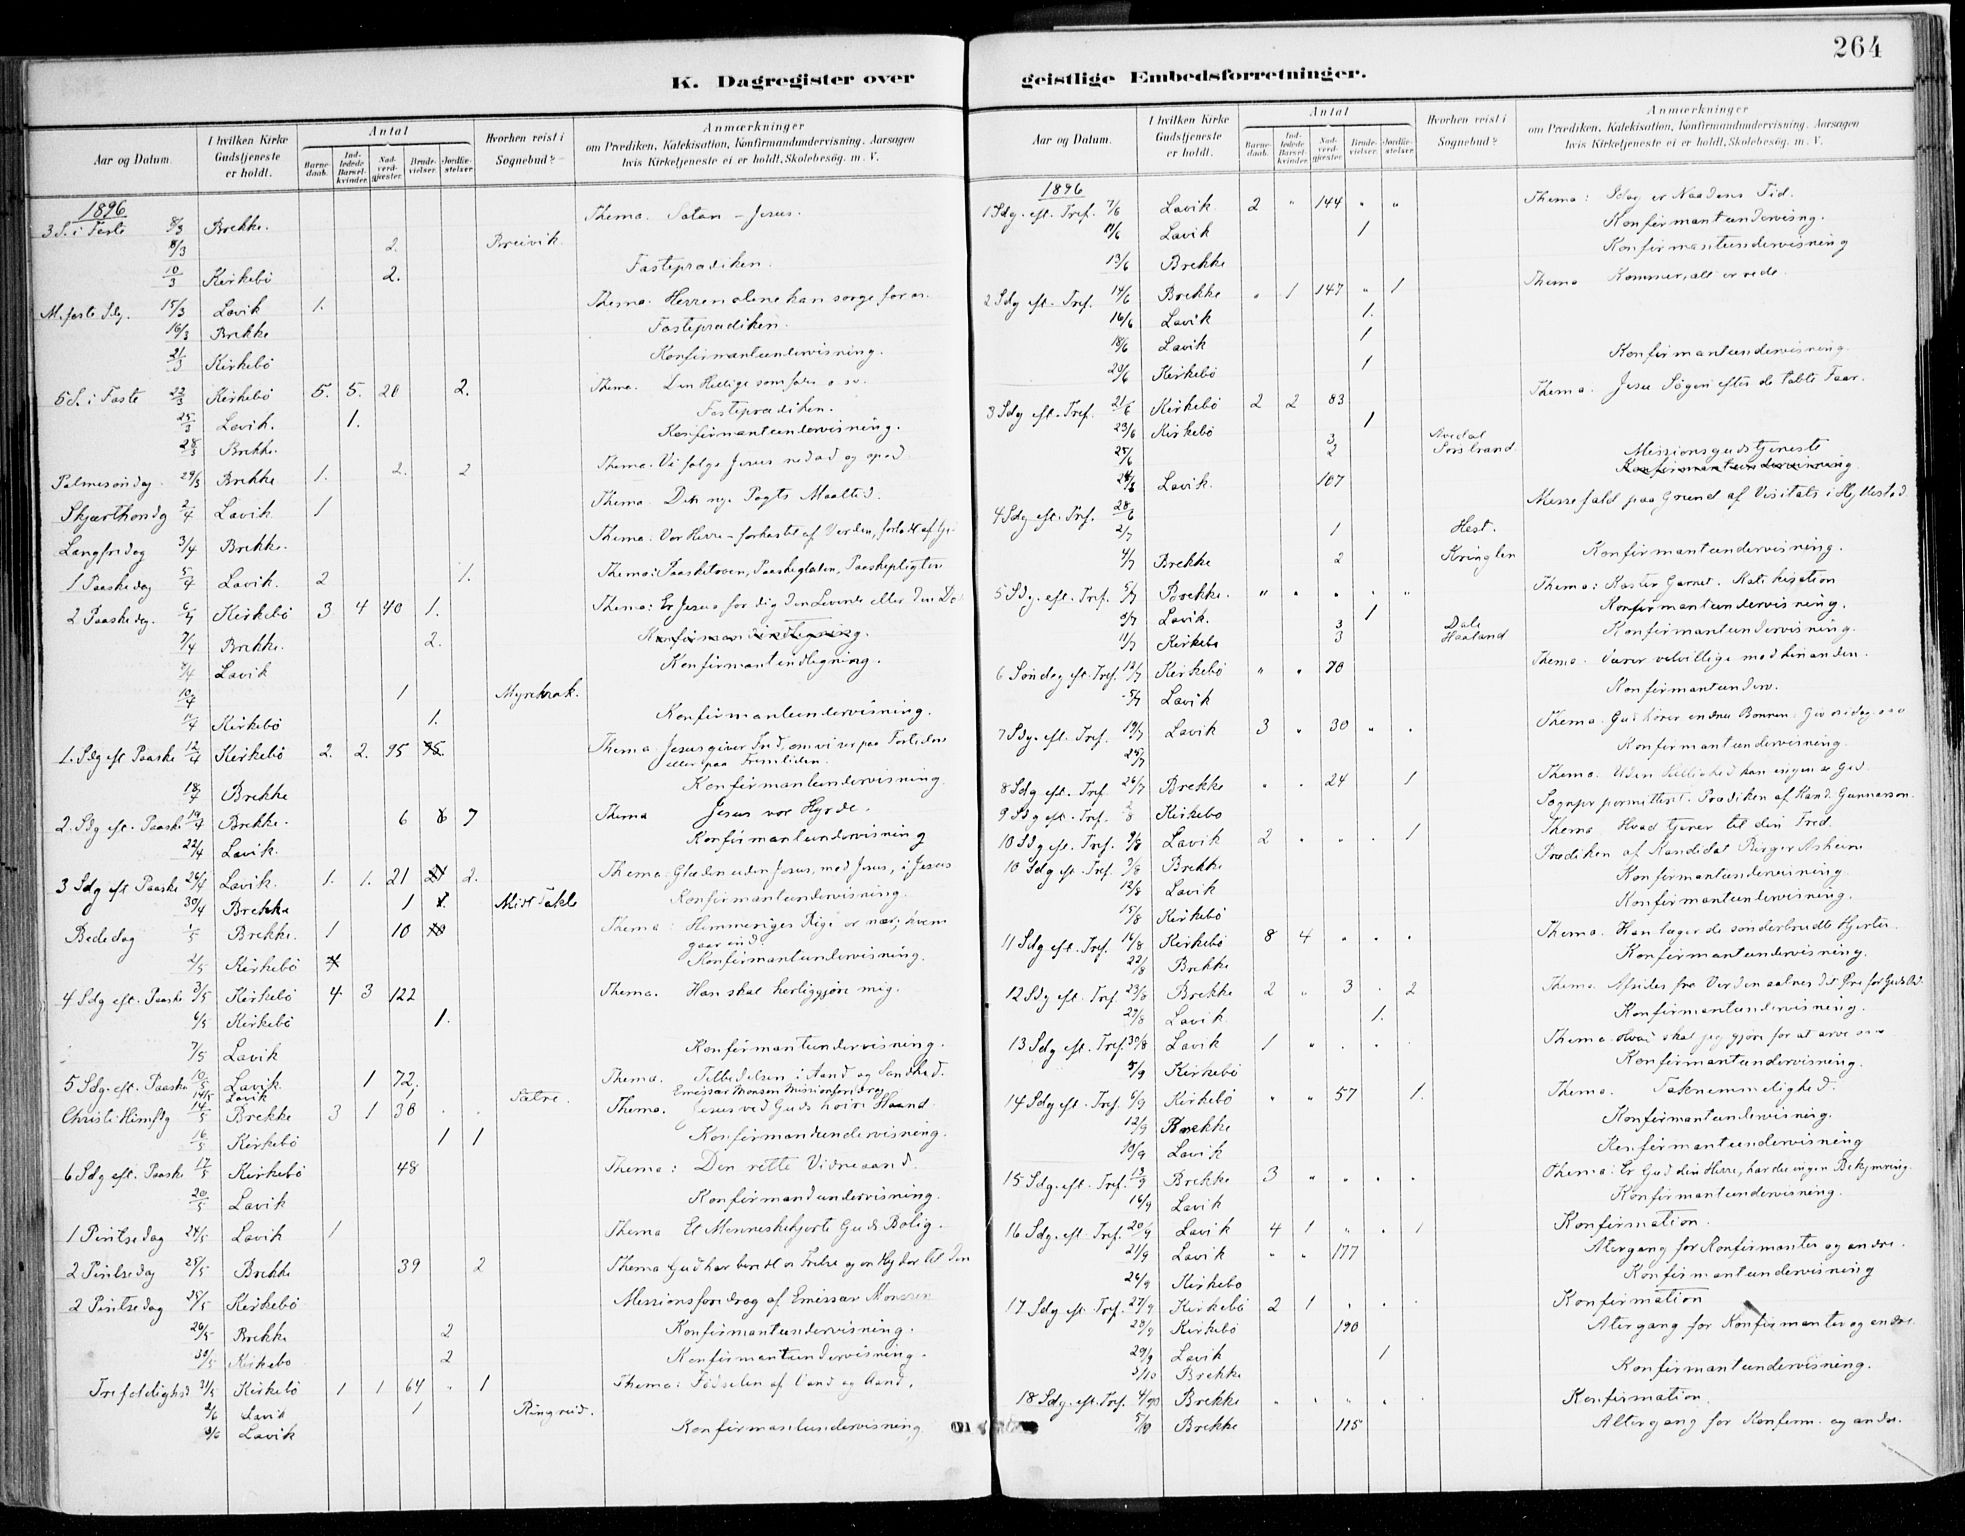 264
K. Dagregister over geistlige Embedsforretninger.
Aar og Datum.
I hvilken Kirke Gudstjeneste er holdt.
Antal
Barnedaab.
Indledede Barselkvinder.
Nadverdgjæster.
Brudevielser.
Jordfæstelser.
Hvorhen reist i Sognebud?
Anmærkninger
om Prædiken, Katekisation, Konfirmandundervisning. Aarsagen
hvis Kirketjeneste ei er holdt, Skolebesøg. m. V.
1896
3 S. i Faste 8/3 Brekke. Thema. Satan – Jesus.
8/3 2. Breivik.
10/3 Kirkebö 2. Fasteprædiken.
M. faste Sdg. 15/3 Lavik 1. Thema. Herren alene kan sørge for os.
16/3 Brekke Fasteprædiken.
21/3 Kirkebö Konfirmantundervisning.
5 S. i Faste 22/3 Kirkebö 5. 5. 20 2. Thema. Den Hellige som
25/3 Lavik. 1. Fasteprædiken.
28/3 Brekke. Konfirmantundervisning.
Palmesöndag. 29/3 Brekke 1. 2. 2 Thema. Vi følge Jesus ned ad og opad
Skjærthorsdg 2/4 Lavik 1 Thema. Den nye Pagts Maaltid.
Langfredag 3/4 Brekke. Thema. Vor Herre – forkastet af Verden, forladt af
1 Paaskedag 5/4 Lavik. 2 1. Thema: Paasketroen, Paaskeglæden, Paaskepligten
2 Paaskedg. 6/4 Kirkebö 3 4 40 1. Thema: Er Jesus for dig den Levende eller den
7/4 Brekke. 2.
8/4 Lavik Konfirmantindtegning.
10/4 1 Myrebrak.
11/4 Kirkebö 1. Konfirmantundervisning.
1. Sdg eft Paaske 12/4 Kirkebö 2. 2. 95 Thema. Jesus giver Fred, om vi ser paa Fortiden
eller paa Fremtiden.
18/4 Brekke Konfirmantundervisning
2. Sdg eft. Paaske 19/4 Brekke. 6 7 Thema Jesus vor Hyrde.
22/4 Lavik. Konfirmantundervisning
3 Sdg eft Paaske 26/4 Lavik. 1. 1. 21 2. Thema: Glæden uden Jesus, med Jesus, i Jesus
30/4 Brekke 1 Konfirmantundervisning.
Bededag 1/5 Brekke. 1 10 Thema: Himmeriges Rige er nær, hvem
gaar ind
2/5 Kirkebö Konfirmantundervisning.
4 Sdg eft. Paaske 3/5 Kirkebö 4 3 122 Thema. Han skal herliggjøre mig.
6/5 Kirkebö 1.
7/5 Lavik Konfirmantundervisning.
5 Sdg. eft. Paaske 10/5 Lavik. 1 72 Thema. Tilbedelsen i Aand og Sandhed.
14/5 Lavik Sætre. Emissær Monsen Missionsforedrag
Christi Himflg 14/5 Brekke 3 1 38 Thema. Jesus ved Guds høire Haand
16/5 Kirkebö 1 1 Konfirmandundervisning.
6 Sdg eft. Paaske 17/5 Kirkebö 48 Thema: Den rette Vidneaand.
20/5 Lavik Konfirmandundervisning.
1 Pintsedag 24/5 Lavik 1 Thema Et Menneskehjerte Guds Bolig.
2 Pintsedag 25/5 Brekke 39 2 Thema Gud har beredt os Frelse og
2 Pintsedag 25/5 Kirkebö Missionsforedrag af Emissær Monsen
26/5 Brekke 2 Konfirmantundervisning.
30/5 Kirkebo 2 Konfirmantundervisning.
Trefoldighed 31/5 Kirkebö 1 1 64 1 Thema: Fødselen af Vand og Aand.
2/6 Lavik 1 Ringreid.
3/6 Lavik Konfirmantundervisning
Aar og Datum.
I hvilken Kirke Gudstjeneste er holdt.
Antal
Barnedaab.
Indledede Barselkvinder.
Nadverdgjæster.
Brudevielser.
Jordfæstelser.
Hvorhen reist i Sognebud?
Anmærkninger
om Prædiken, Katekisation, Konfirmandundervisning. Aarsagen
hvis Kirketjeneste ei er holdt, Skolebesøg. m. V.
1896
1 Sdg. eft. Tref. 7/6 Lavik 2 " 144 " " Thema: Idag er Naadens Tid.
11/6 Lavik 1 Konfirmantundervisng.
13/6 Brekke Konfirmantundervisning
2 Sdg eft. Tref. 14/6 Brekke " 1 147 " 1 Thema Kommer, alt er rede
16/6 Lavik 1.
18/6 Lavik 1
20/6 Kirkebö 1 Konfirmantundervisning.
3 Sdg eft. Tref. 21/6 Kirkebö 2 2 83 Thema. Jesu Søgen efter de tabte Faar.
23/6 Kirkebö 1
25/6 3 2 Sörstrand
24/6 Lavik. 107 Missionsgudstjeneste
Konfirmantundervisning.
4 Sdg eft. Tref. 28/6 Messefald paa Grund af Visitats i Hyllestad
2/7 1 Hest.
4/7 Brekke 2 Kringlen Konfirmantundervisning.
5 Sdg. eft. Tref. 5/7 Brekke. " " " " Thema: Kaster Garnet. Katekisation
9/7 Lavik. 1 Konfirmantundervisning.
11/7 Kirkebö 3 3 Dale Haaland Konfirmantundervisning.
6 Söndag eft. Tref. 12/7 Kirkebö " " 70 Thema. Værer velvillige mod hinanden.
Lavik Konfirmantunderv.
7 Sdg. eft. Tref. 19/7 Lavik 3 " 30 " . Thema. Gud hører endnu Bønnen: Giv os idag osv
25/7 Konfirmantundervisning.
8 Sdg eft. Tref. 26/7 Brekke " . 24 1 Thema. Uden Hellighed kan ingen se Gud.
9 Sdg eft. Tref. 2/8 Kirkebo Sognepr permitteret. Prædiken af Kand. Gunnarson.
10 Sdg eft. Tref. 9/8 Lavik 2 " " . 1 Thema Hvad tjener til din Fred.
10 Sdg ef. Tref. 9/8 Brekke Prædiken af Kandidat Birger Asheim
12/8 Lavik Konfirmantundervisning
15/8 Kirkebö Konfirmantundervisning.
11 Sdg eft. Tref. 16/8 Kirkebö 8 4 " . . Thema. Han læger de sønderbrudte Hjerter.
22/8 Brekke Konfirmantundervisning.
12 Sdg eft. Tref 23/8 Brekke 2 " 3 . 2 Thema. Afsides fra Verden aabnes det Øre for Guds Ord.
29/8 Lavik 1. Konfirmantundervisning.
13 Sdg eft. Tref 30/8 Lavik 1 " . . Thema. Hvad skal jeg gjøre for at arve osv
5/9 Kirkebö Konfirmantundervisning.
14 Sdg eft. Tref. 6/9 Kirkebö " " 57 1. Thema. Taknemmelighed.
12/9 Brekke Konfirmantundervisning.
10/9 Lavik Konfirmantundervisning
15 Sdg. eft. Tref. 13/9 Brekke 3 " " . . Thema: Er Gud din Herre, har du ingen Bekymring.
16/9 Lavik Konfirmantundervisning.
16 Sdg. eft. Tref. 20/9 Lavik 4 1 " . 1 Konfirmation.
21/9 Lavik " " 177 Altergang for Konfirmanter og andre.
26/9 Kirkebo Konfirmantundervisning
17 Sdg eft. Tref. 27/9 Kirkebö 2 1 . . . Konfirmation
28/9 Kirkebö 190 Altergang for Konfirmanter og andre.
29/9 Lavik 1
3/10 Brekke Konfirmantundervisning.
18 Sdg. eft. Tref. 4/10 Brekke " . " . . Konfirmation.
5/10 Brekke 115 Altergang for Konfirm. og andre.